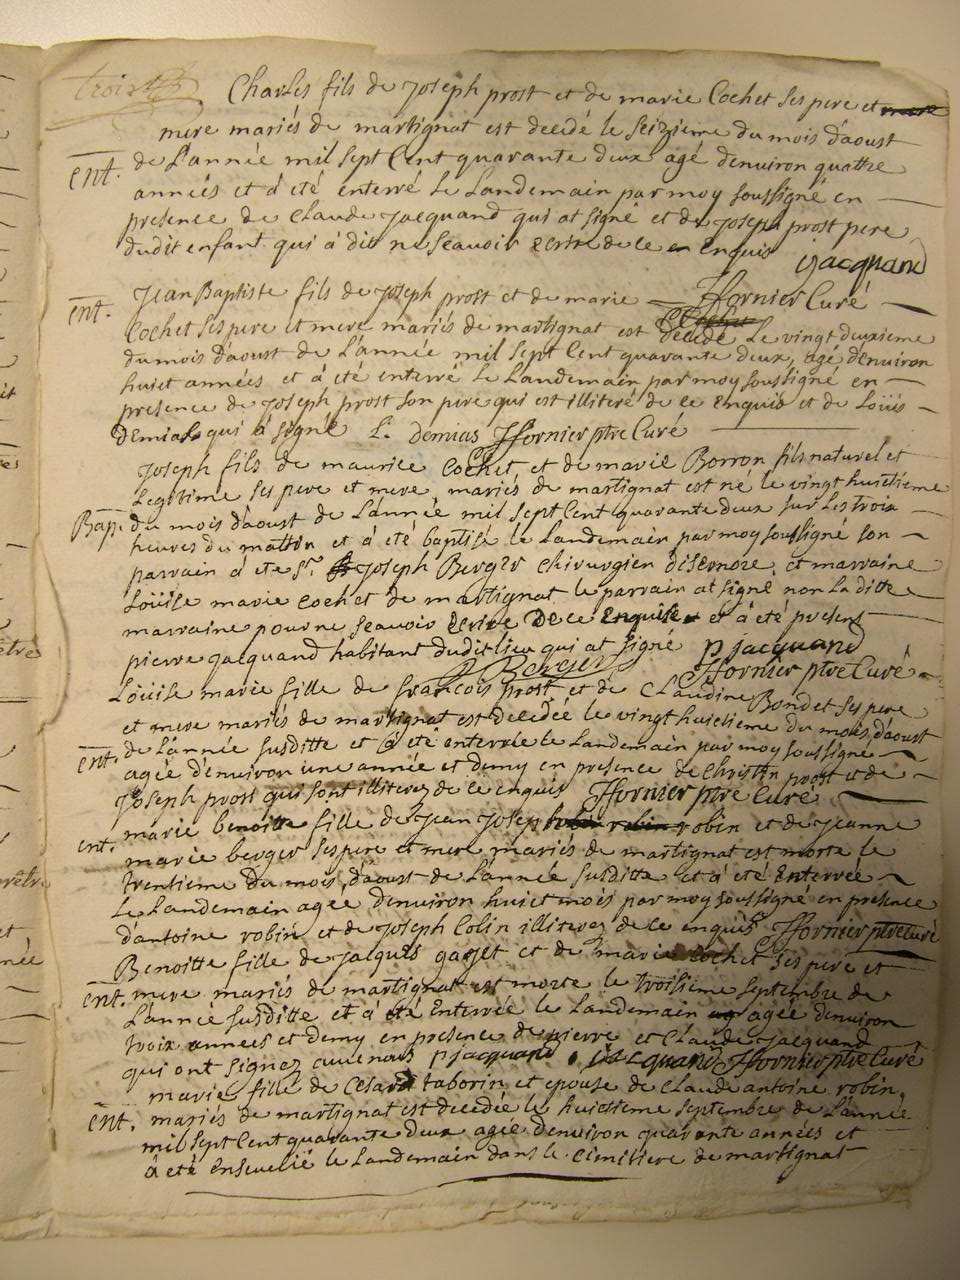 trois
Charles fils de Joseph prost et de marie Cochet ses pere et
mere mariés de martignat est decedé le seizieme du mois d'aoust
ent. de L'année mil sept Cent quarante deux agé d'environ quattre
années et á été enterré le Landemain par moy soussigné en
presence de Claude Jacquand qui at signé et de Joseph prost pere
dudit enfant qui á dit ne scavoir ecrire de ce enquis cjacquand
ent. Jean Baptiste fils de Joseph prost et de marie ffornier Curé
Cochet ses pere et mere mariés de martignat est decedé le vingt deuxieme
du mois d'aoust de L'année mil sept Cent quarante deux, agé d'environ
huict années et á été enterré le Landemain par moy soussigné en
presence de Joseph prost son pere qui est illiteré de ce enquis et de Loüis
demias qui á signé L. demias ffornier ptre Curé
Joseph fils de maurice Cochet et de marie Borron fils naturel et
Legitime ses pere et mere, mariés de martignat est né le vingt huictieme
Bap. du mois d'aoust de L'année mil sept Cent quarante deux sur les trois
heures du mattin et á été baptisé le Landemain par moy soussigné son
parrain á ete Sr. Joseph Berger Chirurgien d'isernore, et marraine
Loüise marie cochet de martignat le parrain at signé non La ditte
marraine pour ne scavoir ecrire De ce Enquise et á été present
pierre jacquand habitant dudit lieu qui at signé p jacquand
Berger ffornier ptre Curé
Loüise marie fille de françois prost et de Claudine Bondet ses pere
et mere mariés de martignat est decedée le vingt huictieme du mois, d'aoust
ent. de L'année susditte et á été enterrée le Landemain par moy soussigné
agée d'environ une année et demy en presence de Christin prost et de
Joseph prost qui sont illiterez de ce enquis ffornier ptre Curé
ent. marie benoitte fille de Jean Joseph robin et de Jeanne
marie berger ses pere et mere mariés de martignat est morte le
trentieme du mois, d'aoust de L'année susditte et á été Enterrée
Le Landemain agée d'environ huict mois par moy soussigné en presence
d'antoine robin et de Joseph Colin illiterez de ce enquis ffornier ptre Curé
Benoitte fille de jacques gayet et de marie cochet ses pere et
ent. mere mariés de martignat est morte le troisieme septembre de
L'année susditte et á été Enterrée le Landemain agée d'environ
trois années et demy en presence de pierre et Claude jacquand
qui ont signez pjacquand. cjacquand ffornier ptre Curé
marie fille de Cesard taborin et epouse de Claude antoine robin,
ent. mariés de martignat est decedée le huictieme septembre de L'année
mil sept Cent quarante deux agée d'environ quarante années et
á été Ensevelie le Landemain dans le Cimitiere de martignat